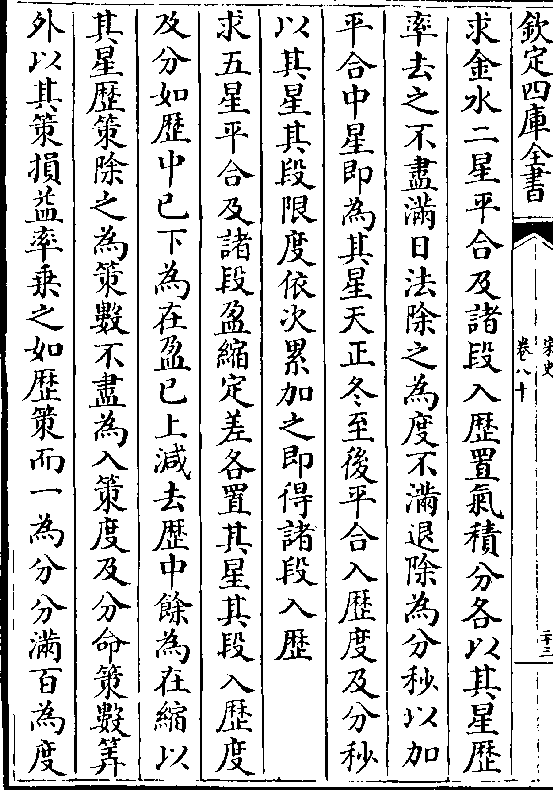 欽定四庫全書
宋史
卷八十
求金水二星平合及諸段入歴置氣積分各以其星歴
率去之不盡滿日法除之為度不滿退除為分秒以加
平合中星即為其星天正冬至後平合入歴度及分秒
以其星其段限度依次累加之即得諸段入歴
求五星平合及諸段盈縮定差各置其星其段入歴度
及分如歴中已下為在盈已上減去歴中餘為在縮以
其星歴策除之為策數不盡為入策度及分命策數筭
外以其策損益率乗之如歴策而一為分分滿百為度